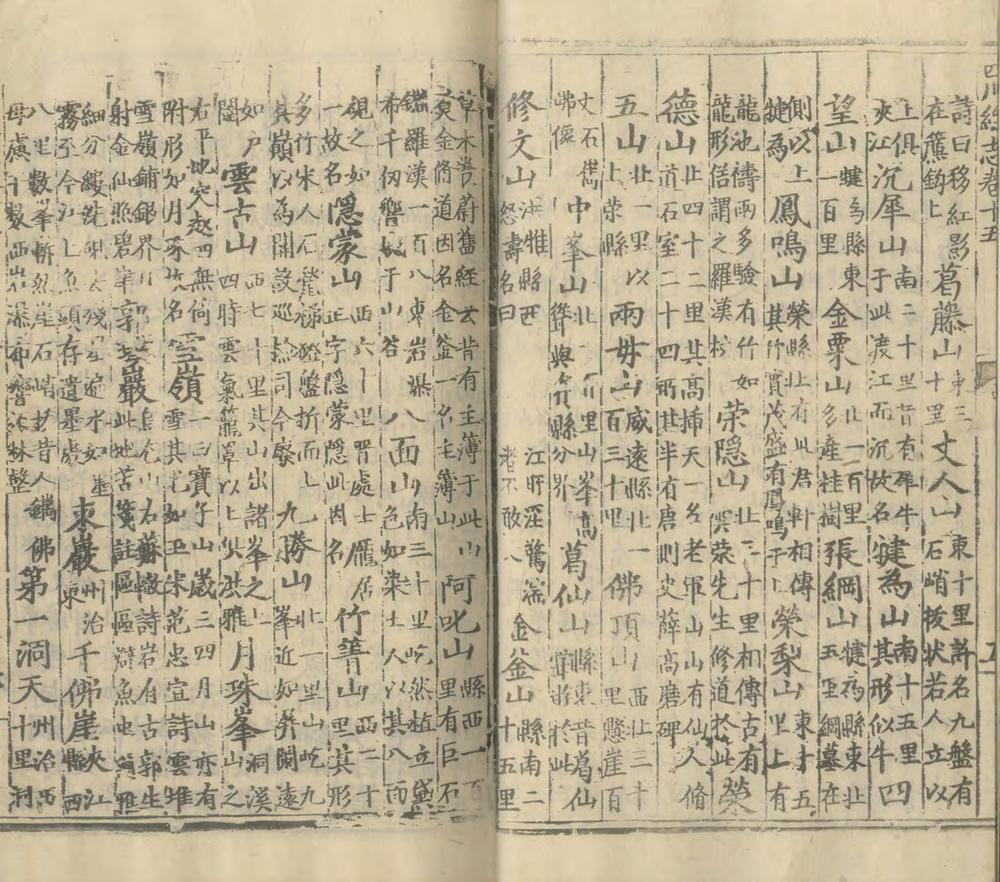 四川總志卷十五
詩曰移紅影在簾鈎上葛藤山東三十里丈人山東十里許名九盤有石峭拔狀若人立以
上俱夾江沉犀山南二十里昔有犀牛于此渡江而沉故名犍為山南十五里其形似牛四
望山犍為縣東一百里金粟山北一百里多產桂樹張綱山犍為縣東北五里綱墓在
側以上犍為鳳鳴山榮縣北有此君軒相傳其竹實茂盛有鳳鳴于上榮梨山東十五里上有
龍池禱雨多驗有竹如龍形俗謂之羅漢杖榮隱山北三十里相傳古有榮先生修道於此榮
德山北四十二里其高插天一名老軍山山有仙人脩道石室二十四所其半有唐刺史薛高磨碑
五山北一里以上榮縣兩母山威遠縣北一百三十里佛頂山西北三十里懸崖百
丈石佛像中峯山北里山峯高聳與資縣分界葛仙山縣東昔葛仙於此
修文山洪雅縣西怒濤名曰江驚湍者不敢入金釜山縣南二十五里
草木岑蔚舊經云昔有主簿于此山炙金脩道因名金釜一名主簿山阿叱山縣西一百里有巨石
鑑羅漢一百八東岩瀑布千仞響于山谷八面山南三十里屹然植立黛色如染土人以其八面
視之如一故名隱蒙山西六十里晋處士居正字隱蒙隱此因名竹箐山西二十里其形
多竹木人石梯磴盤折而上其巔以為關設巡檢司今廢九勝山北一里山屹九峯近如屏闌遠
如戶闔雲古山西七十里其山出諸峯之上四時雲氣籠罩以上洪雅月珠峯洞溪山之
右平地突起四無倚附形如月故名雪嶺一曰寶子山歲三四月山亦有雪其光如玉宋范忠宣詩雲堆
雪嶺鋪銀界日射金仙照碧峯郭巖烏尤山右蘇轍詩岩有古郭生此地苦箋註區區辯魚虫爾雅
細分縷洗硯去殘墨遍水如墨霧至今江上魚頭存遺墨處東巖州治東千佛崖夾江縣西
八里數峯嶄然崖石峭抜昔人鐫佛毋慮千數西岩瀑布響谷林壑第一洞天州治西十里洞